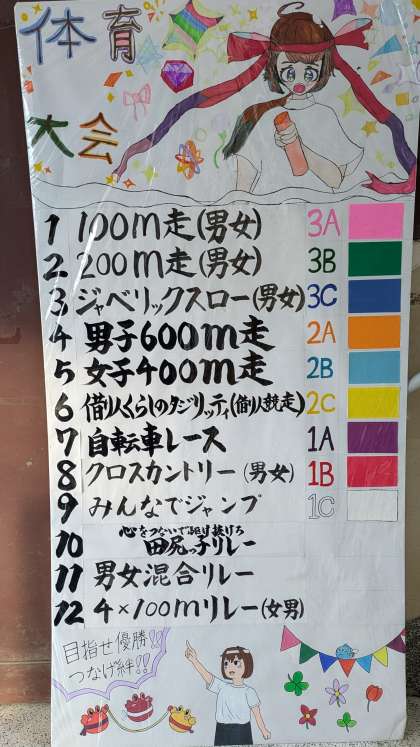 体育
大会
1 100m走(男女) 3A
2 200m走(男女) 3B
3 ジャベリックスロー(男女) 3C
4 男子600m走 2A
5 女子400m走 2B
6 借りぐらしのタジリッティ(借り人競走) 2C
7 自転車レース 1A
8 クロスカントリー(男女) 1B
9 みんなでジャンプ 1C
10 心をつないで駆け抜けろ
田尻っ子リレー
11 男女混合リレー
12 4×100mリレー(女男)
目指せ優勝!!
つなげ絆!!